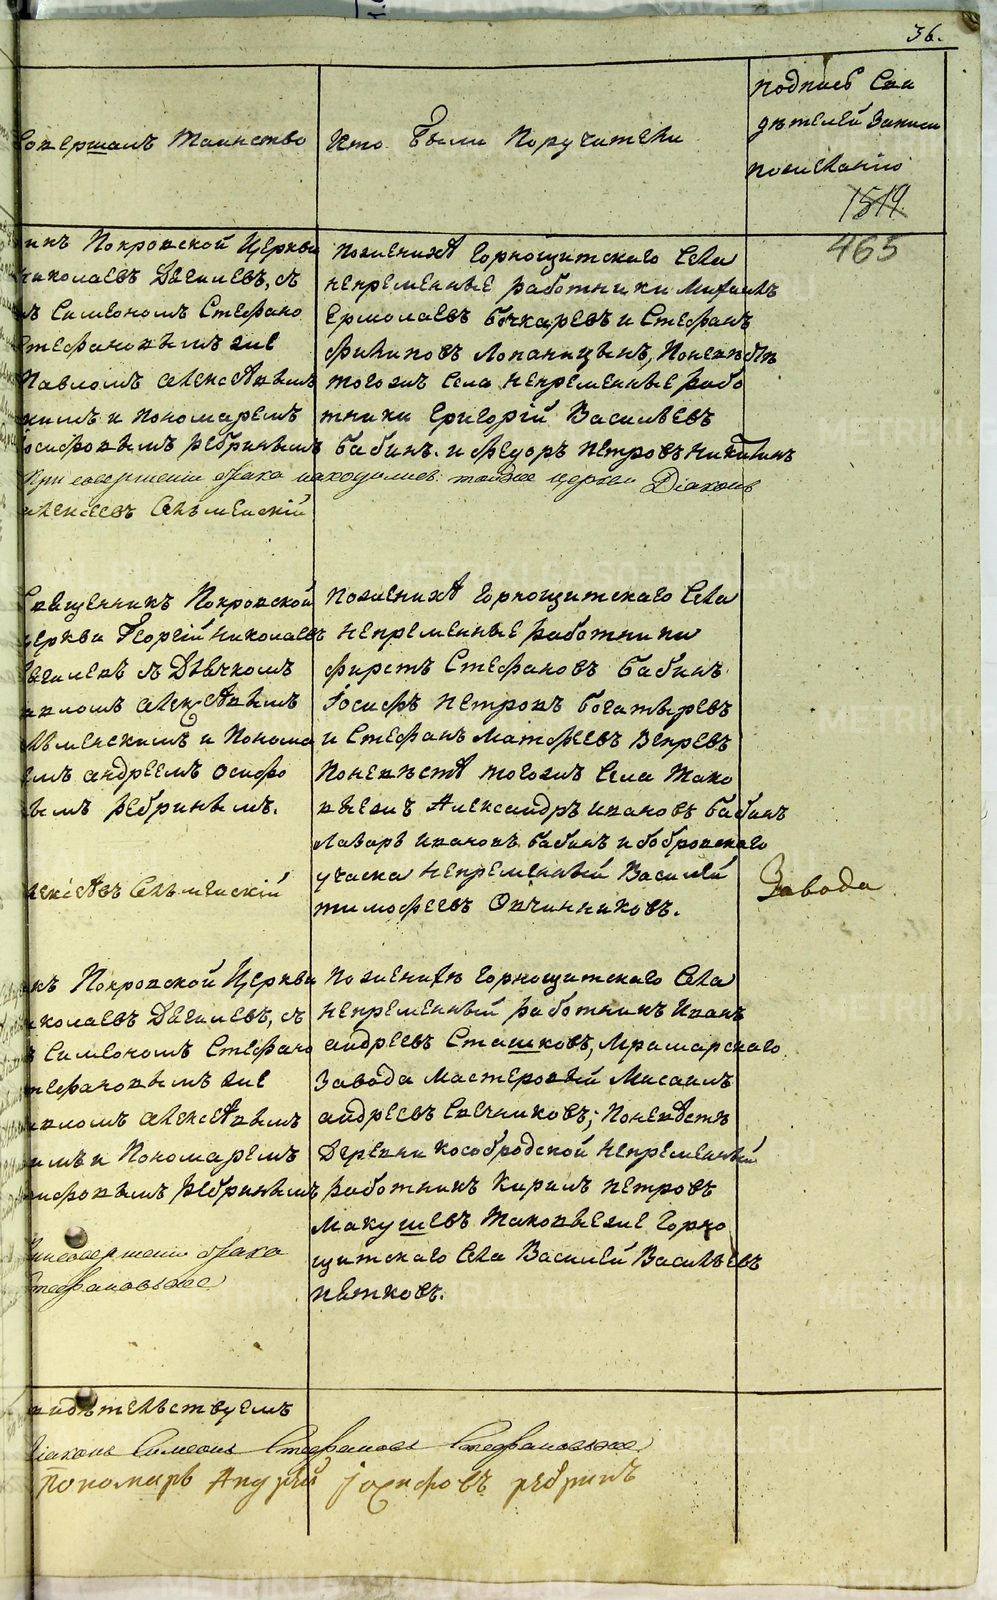 36.
Совершалъ Таинство
Кто были Поручители
подпись Сви
дѣтелей Записи
пожеланію
1519.
465
икъ Покровской Церкви
Николаевъ Дягилевъ, съ
Симеономъ Стефано
Стефановымъ же
Павломъ Алексѣевымъ
кимъ и Пономаремъ
Іосифовымъ Ребринымъ
При совершеніи брака находился тойже церкви Діаконъ
Алексеевъ Сельменскій
По женихѣ Горнощитскаго Села
непременные работники Михаилъ
Ермолаевъ Бочкаревъ и Стефанъ
Филиповъ Лопаницынъ, По невѣсте
тогожъ Села непременные рабо
тники Григорій Васильевъ
Бабинъ. и Федоръ Петровъ Никитинъ
Священникъ Покровской
церкви Георгій Николаевъ
Дягилевъ съ Дьячкомъ
Павломъ Алексѣевымъ
Сельменскимъ и Понома
ремъ Андреемъ Осифо
вымъ Ребринымъ.
Алексѣевъ Сельменскій
По женихѣ Горнощитскаго Села
непременные работники
Фирстъ Стефановъ Бабинъ
Іосифъ Петровъ Богатыревъ
и Стефанъ Матфеевъ Вепревъ
По невѣстѣ тогожъ Села тако
выежъ Александръ Ивановъ Бабинъ
Лазарь Ивановъ Бабинъ и бобровскаго
учаска непременный Василей
Тимофеевъ Овчинниковъ.
Завода
икъ Покровской Церкви
Николаевъ Дягилевъ, съ
Симеономъ Стефано
Стефановымъ же
Павломъ Алексѣевымъ
кимъ и Пономаремъ
Іосифовымъ Ребринымъ
При совершеніи брака
Стефановыже
По женихѣ Горнощитскаго Села
непременный работникъ Иванъ
Андреевъ Сташковъ, Мрамарскаго
Завода Мастеровый Мисаилъ
Андреевъ Свечниковъ; По невѣсте
Деревни Кособродской непременный
работникъ Кирилъ Петровъ
Макушевъ таковыеже Горно
щитскаго Села Василей Васильевъ
Пятковъ.
свидѣтельствуемъ
Діаконъ Симеонъ Стефановъ Стефановыже
Пономарь Андрей Іосифовъ Ребринъ